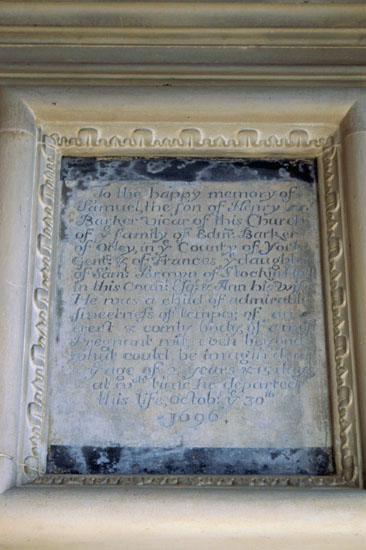 To the happy memory of
Samuel, the son of Henry
Barker Vicar of this Church
of yͤ family of Edm: Barker
of Otley, in yͤ County of York
Gent: & of Frances yͤ daughter
of Sam: Brown of
in this Count Esqr & Ann his wife
He was a child of admirable
sweetness of temper, of an
erect & comly body, of a
Pregnant wit, even beyond
what could be
yͤ age of 2 years & 15 days
at wͨͪ time he departed
this life, Octob: yͤ 30ᵗʰ
1696